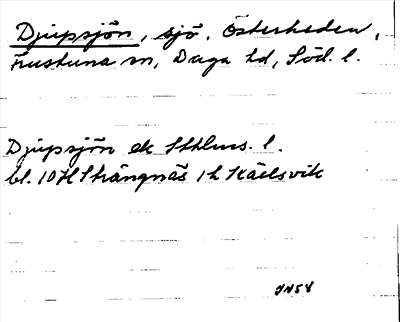 Djupsjön, sjö, Österheden,
Frustuna sn, Daga hd, Söd. l.
Djupsjön ek Sthlms. l.
bl. 10H Strängnäs 1h Kärlsvik